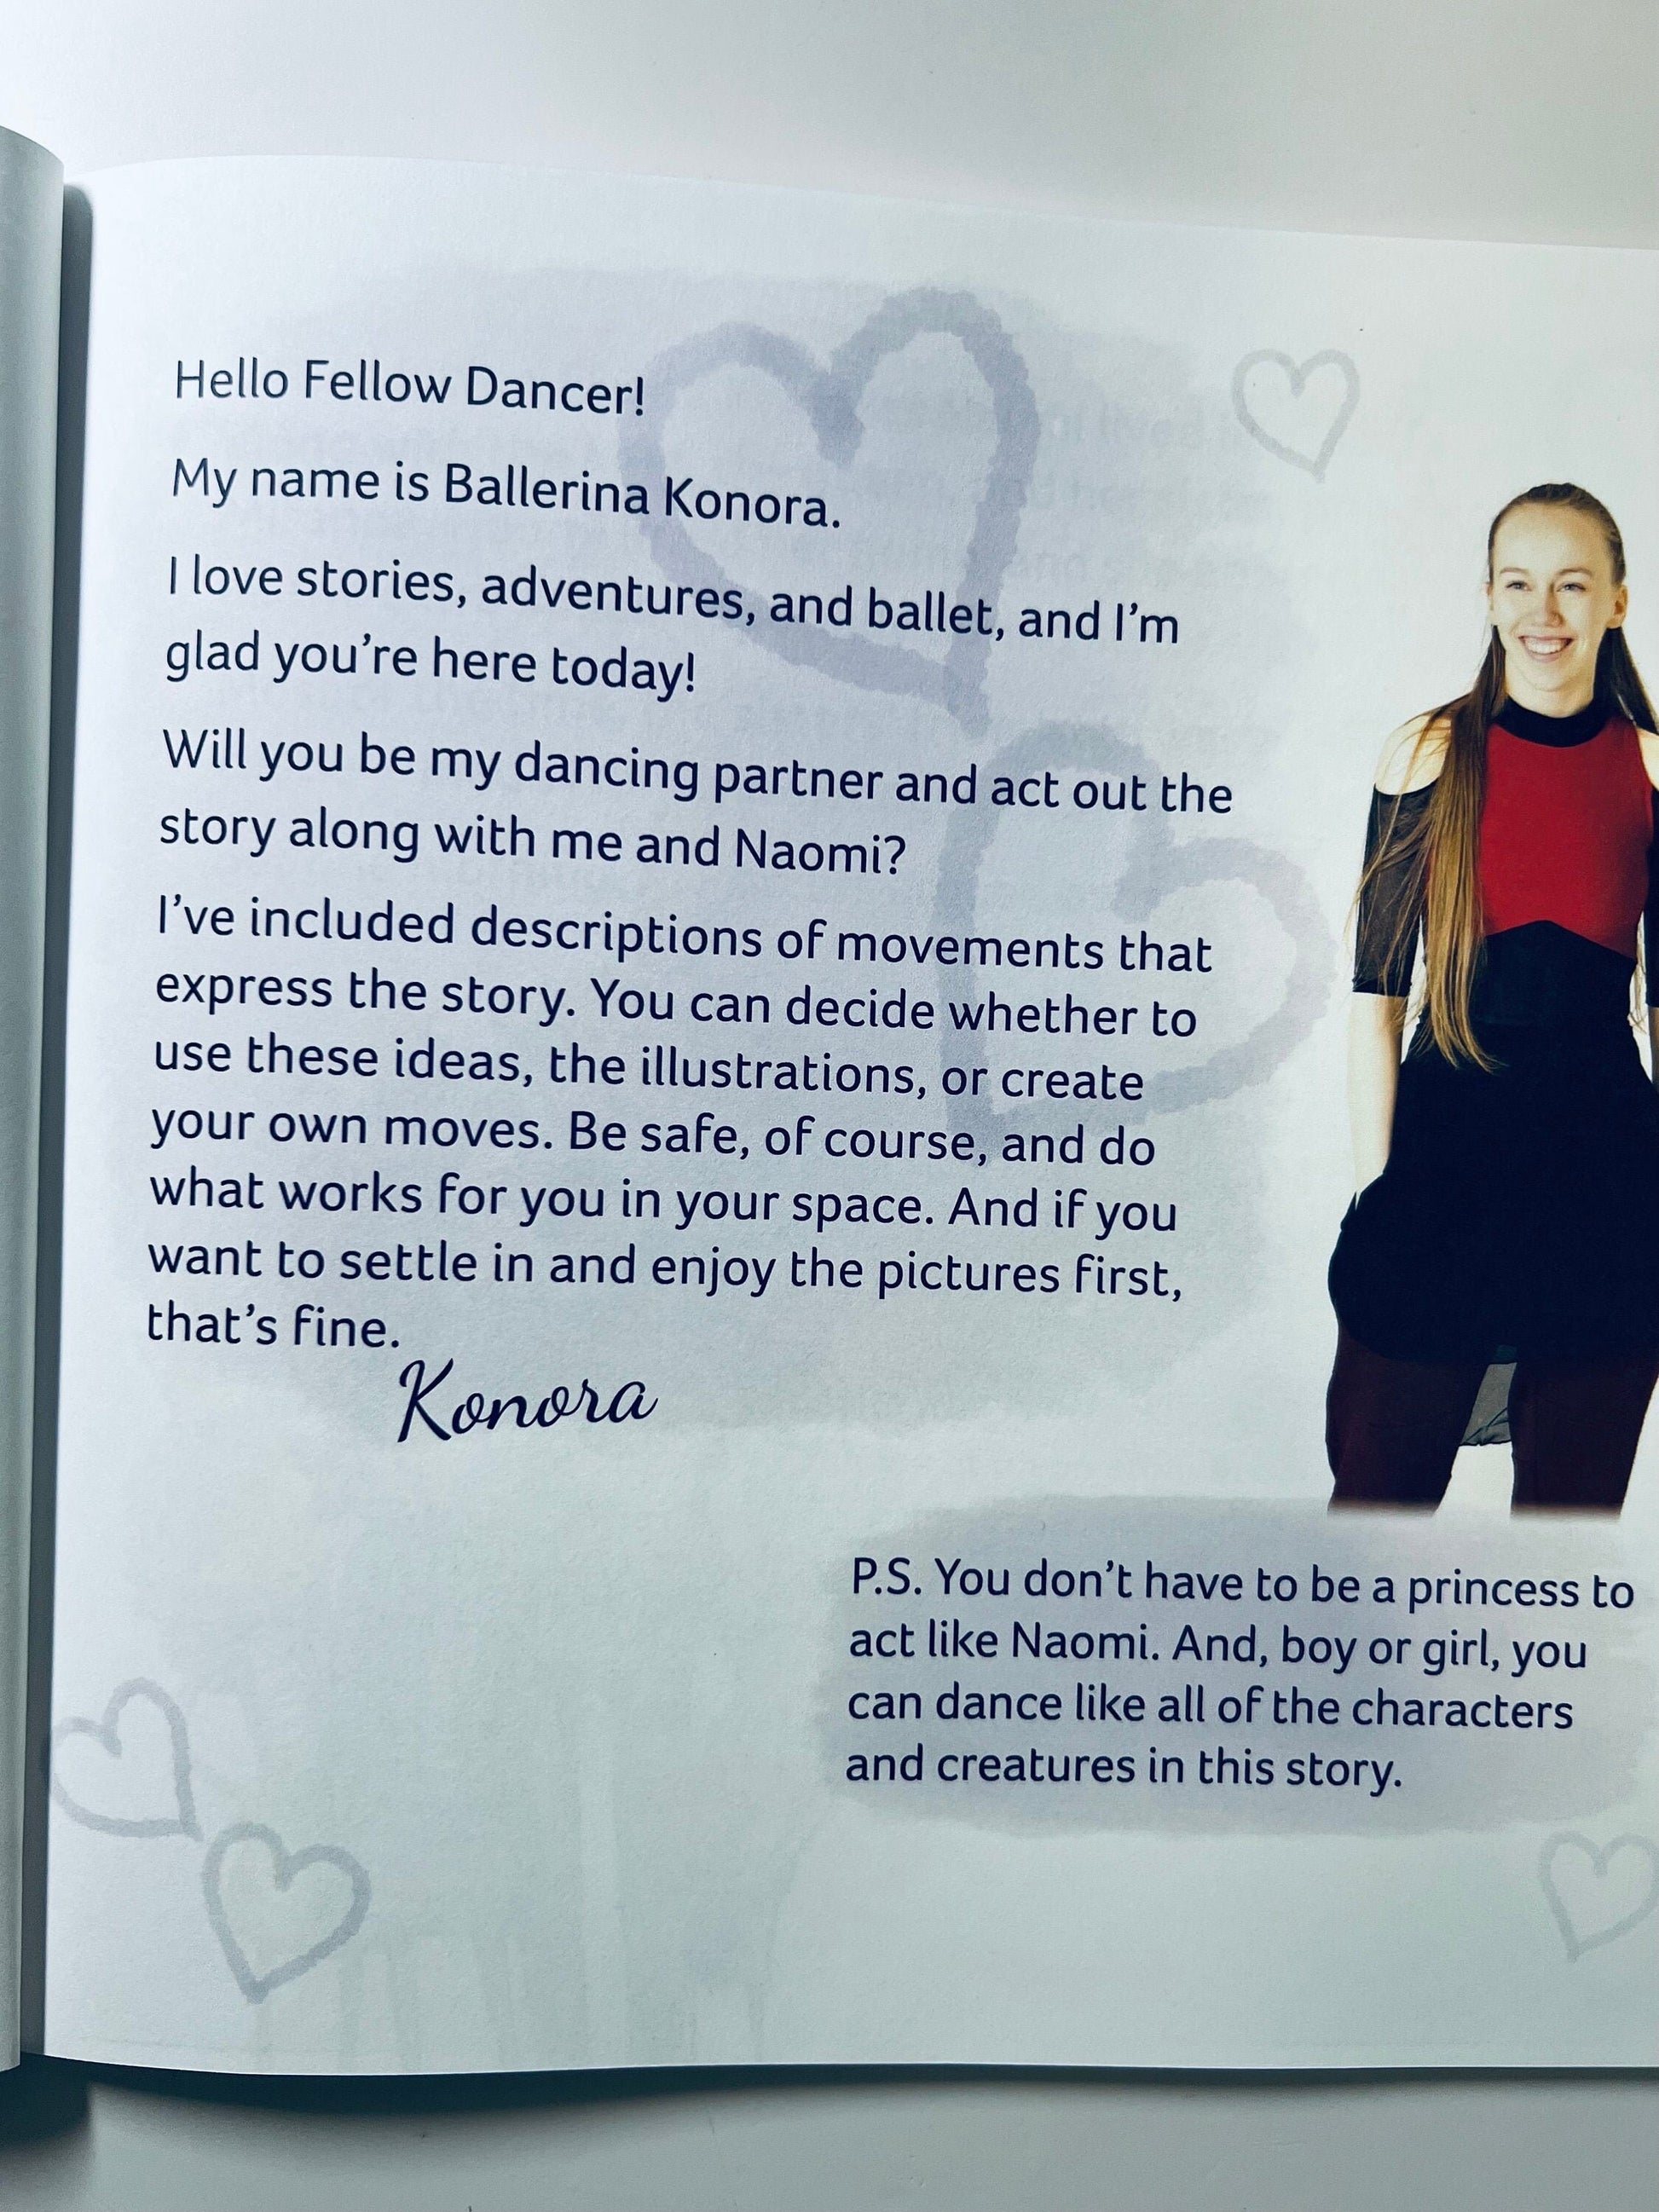 Hello Fellow Dancer!
My name is Ballerina Konora.
I love stories, adventures, and ballet, and I'm
glad you're here today!
Will you be my dancing partner and act out the
story along with me and Naomi?
I've included descriptions of movements that
express the story. You can decide whether to
use these ideas, the illustrations, or create
your own moves. Be safe, of course, and do
what works for you in your space. And if you
want to settle in and enjoy the pictures first,
that's fine.
Konora
P.S. You don't have to be a princess to
act like Naomi. And, boy or girl, you
can dance like all of the characters
and creatures in this story.